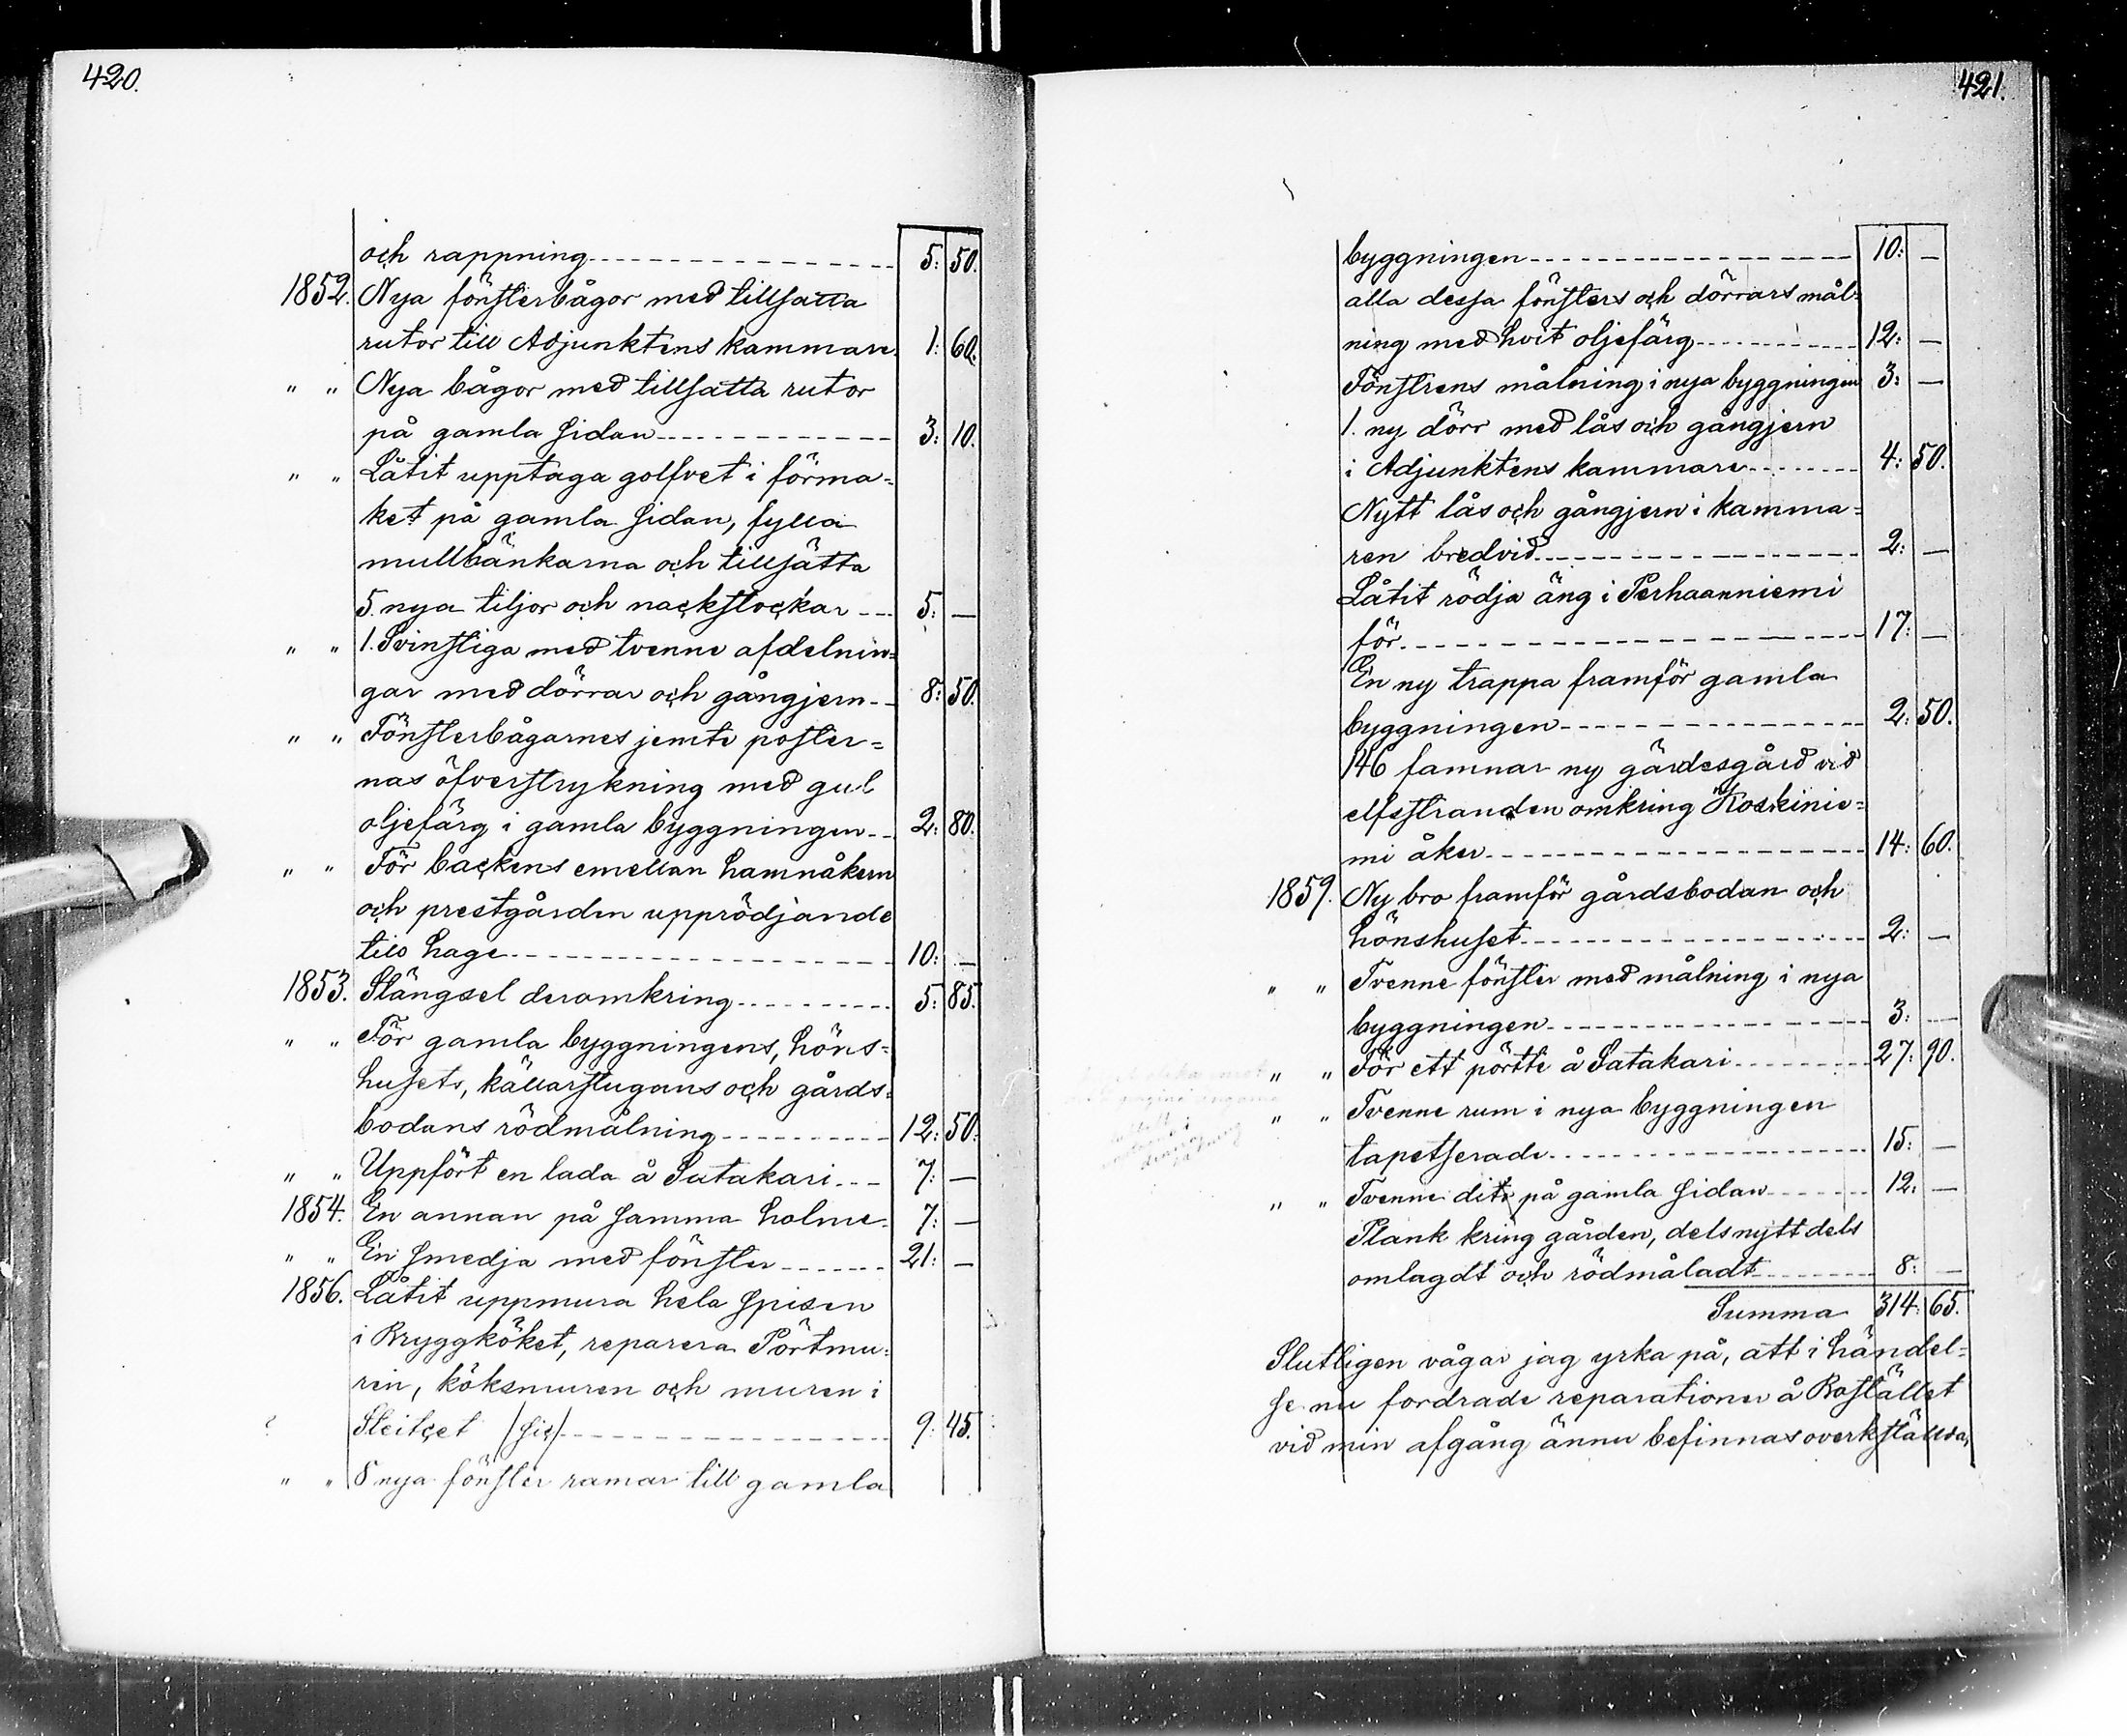 420.
och rappning 5: 50.
1852. Nya fönsterbågor med tillsatta
rutor till Adjunktens kammare 1: 60.
" " Nya bågor med tillsatta rutor
på gamla sidan 3: 10.
" " Låtit upptaga golfvet i förma=
ket på gamla sidan, fylla
mullbänkarna och tillsätta
5. nya tiljor och nackstockar 5: —
" " 1. Svinstiga med tvenne afdelnin=
gar med dörrar och gångjern 8: 50.
" " Fönsterbågarnes jemte poster=
nas öfverstrykning med gul
oljefärg i gamla byggningen 2: 80.
" " För backens emellan hamnåkern
och prestgården upprödjande
till hage 10: —
1853. Stängsel deromkring 5: 85.
" " För gamla byggningens, höns=
husets, källarstugans och gårds=
bodans rödmålning 12: 50.
" " Uppfört en lada å Satakari 7: —
1854. En annan på samma holme 7: —
" " En smedja med fönster 21: —
1856. Låtit uppmura hela spisen
i Bryggköket, reparera Pörtmu=
ren, köksmuren och muren i
Steitcet /sic/ 9: 45.
" " 8 nya fönster ramar till gamla
421.
byggningen 10: —
alla dessa fönsters och dörrars mål=
ning med hvit oljefärg 12: —
Fönstrens målning i nya byggningen 3: —
1. ny dörr med lås och gångjern
i Adjunktens kammare 4: 50.
Nytt lås och gångjern i kamma=
ren bredvid 2: —
Låtit rödja äng i Perhaanniemi
för 17: —
En ny trappa framför gamla
byggningen 2: 50.
146 famnar ny gärdesgård vid
elfsstranden omkring Koskinie=
mi åker 14: 60.
1859. Ny bro framför gårdsbodan och
hönshuset 2: —
" " Tvenne fönster med målning i nya
byggningen 3: —
" " För ett pörtte å Satakari 27: 90.
" " Tvenne rum i nya byggningen
tapetserade 15: —
" " Tvenne dito på gamla sidan 12: —
Plank kring gården, dels nytt dels
omlagdt och rödmåladt 8: —
Summa 314: 65.
Slutligen vågar jag yrka på, att i händel=
se nu fordrade reparationer å Bostället
vid min afgång ännu befinnas overkställda,